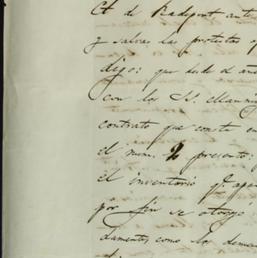 Ct de Radepont ante
y salvas las protestas
digo: que desde el año
con los SS. Manni
contrato que consta en
el num. 2 presento:
el inventario q. apa
por fin se otorgó
damentos, como los demas